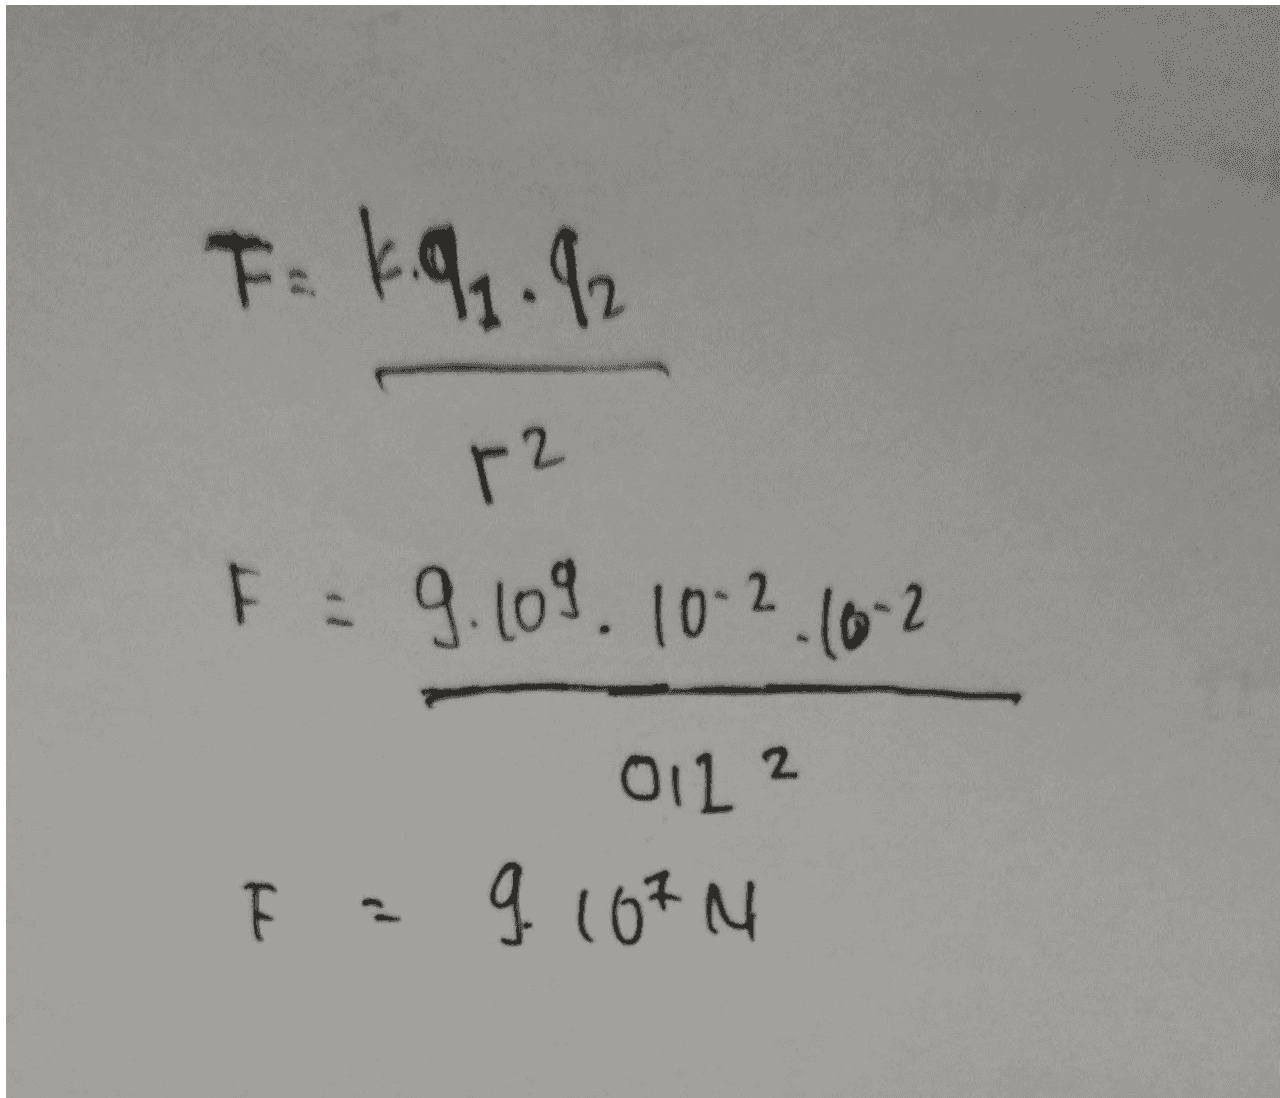 F = k.q₁.q₂
r²
F = 9.10⁹. 10⁻².10⁻²
0,1²
F = 9.10⁷ N